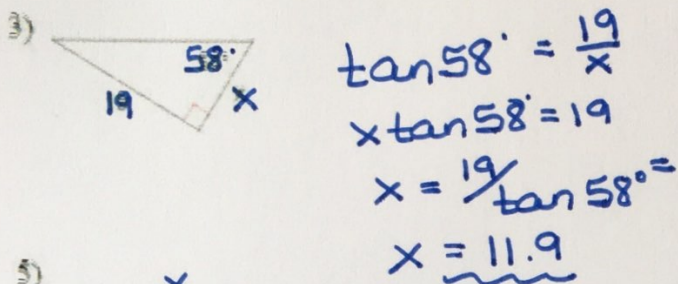 3)
58°
19
x
tan58° = 19/x
x tan58° = 19
x = 19/tan 58° =
x = 11.9
5)
x